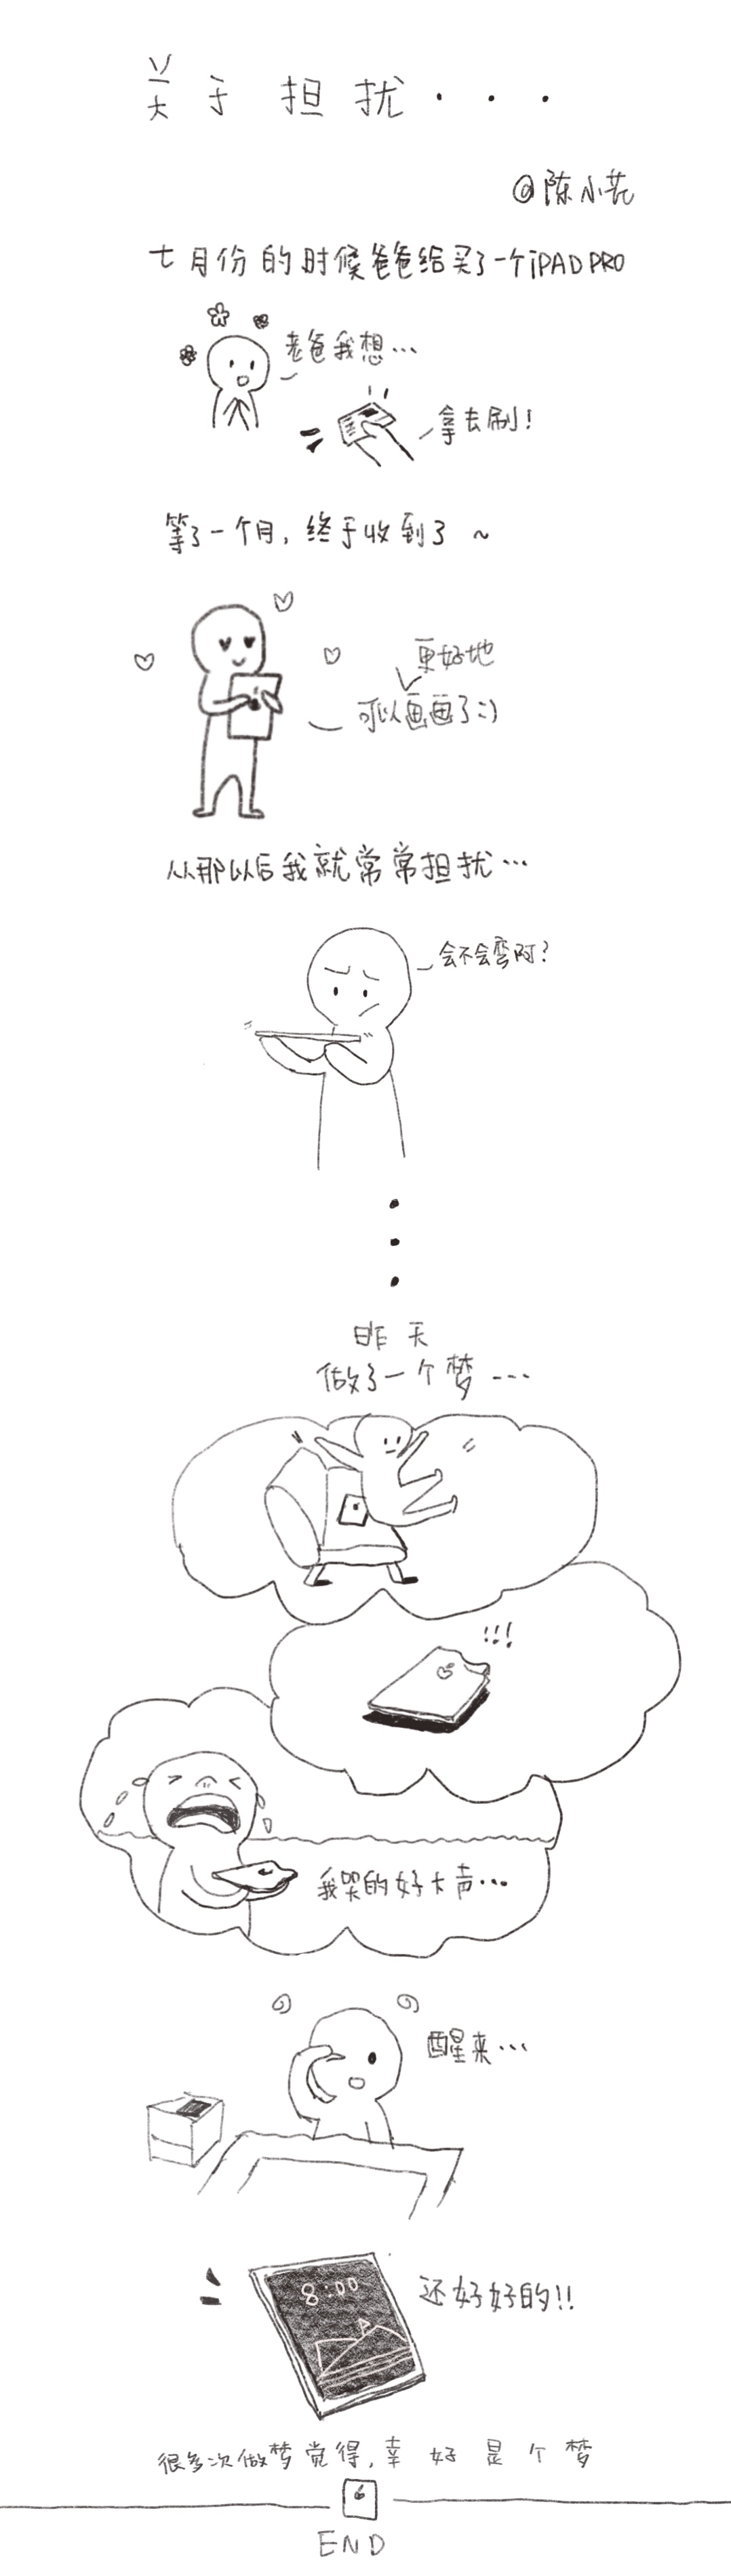 关于担扰···
@陈小芫
七月份的时候爸爸给买了一个iPAD PRO
老爸我想…
拿去刷！
等了一个月，终于收到了~
更好地
可以画画了:)
从那以后我就常常担扰…
会不会弯阿？
昨天
做了一个梦…
!!!
我哭的好大声…
醒来…
8:00
还好好的!!
很多次做梦觉得，幸好是个梦
END